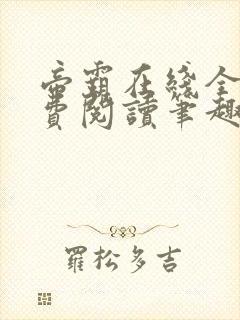 帝霸在綫全
費閱讀筆趣
羅松多吉